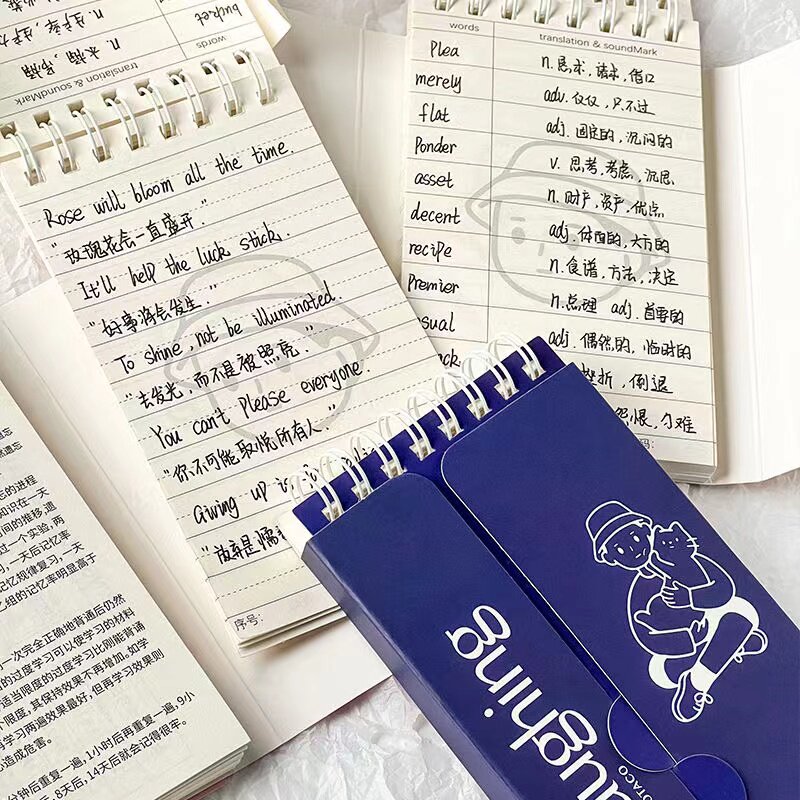 bucket
words
translation & soundMark
Rose will bloom all the time.
"玫瑰花会一直盛开"
It'll help the luck stick.
"好事将会发生."
To shine, not be illuminated.
"去发光,而不是被照亮."
You can't Please everyone.
"你不可能取悦所有人"
Giving up is
"放弃是懦
序号:
words translation & soundMark
Plea n.恳求,请求,借口
merely adv.仅仅,只不过
flat adj.固定的,沉闷的
Ponder v.思考,考虑,沉思
asset n.财产,资产,优点
decent adj.体面的,大方的
recipe n.食谱,方法,决定
Premier n.总理 adj.首要的
sual adj.偶然的,临时的
挫折,倒退
恨,刁难
码:
遗忘
然遗忘
忘的进程
知识在一天
间的推移,遗
过一个实验,两
,一天后记忆率
记忆规律复习,一天
乙组的记忆率明显高于
一次完全正确地背诵后仍然
的过度学习可以使学习的材料
适当限度的过度学习比刚能背诵
限度,其保持效果不再增加。如学
学习两遍效果最好,但再学习效果则
造成危害。
分钟后重复一遍,1小时后再重复一遍,9小
,8天后,14天后就会记得很牢。
aughing
OTACO